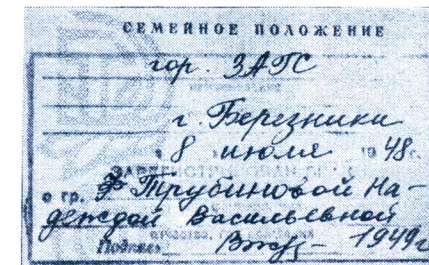 СЕМЕЙНОЕ ПОЛОЖЕНИЕ
гор. ЗАГС
г. Березники
8 июля 1948 г.
ЗАРЕГИСТРИРОВАН БРАК
о гр. Трубиновой На-
деждой Васильевной
1949г